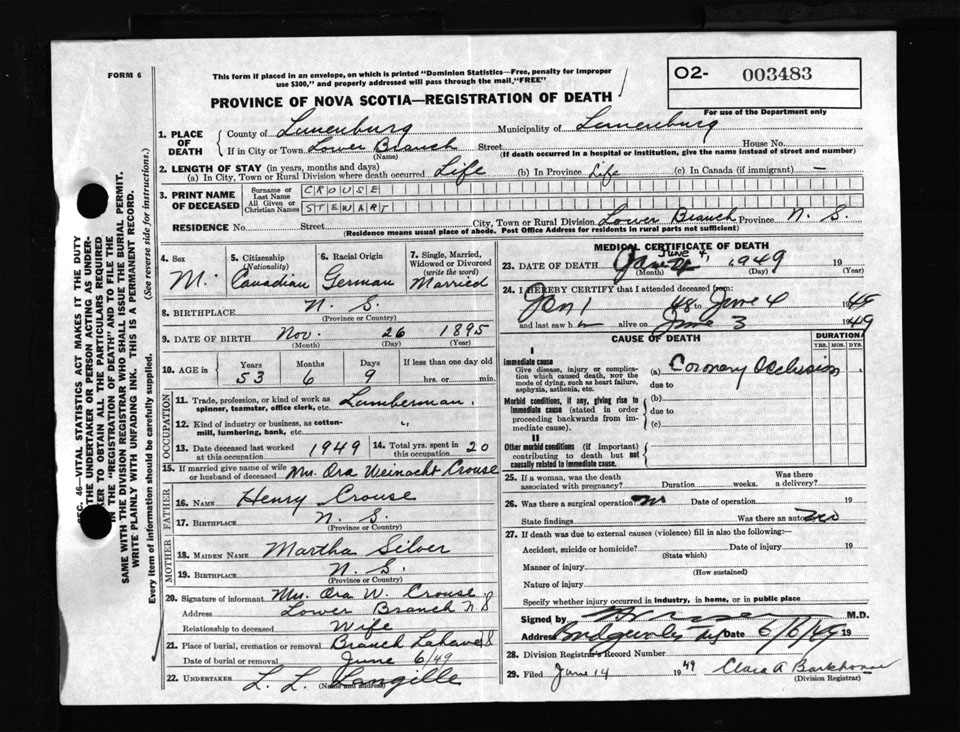 FORM 6
This form if placed in an envelope, on which is printed "Dominion Statistics—Free, penalty for improper
use $300," and properly addressed will pass through the mail, "FREE"
O2- 003483
For use of the Department only
PROVINCE OF NOVA SCOTIA—REGISTRATION OF DEATH
1. PLACE OF DEATH
County of Lunenburg Municipality of Lunenburg
If in City or Town Lower Branch Street House No.
(Name) (If death occurred in a hospital or institution, give the name instead of street and number)
2. LENGTH OF STAY (in years, months and days)
(a) In City, Town or Rural Division where death occurred Life (b) In Province Life (c) In Canada (if immigrant) —
3. PRINT NAME OF DECEASED
Surname or Last Name CROUSE
All Given or Christian Names STEWART
RESIDENCE No. Street City, Town or Rural Division Lower Branch Province N. S.
(Residence means usual place of abode. Post Office Address for residents in rural parts not sufficient)
4. Sex M.
5. Citizenship (Nationality) Canadian
6. Racial Origin German
7. Single, Married, Widowed or Divorced (write the word) Married
8. BIRTHPLACE N. S.
(Province or Country)
9. DATE OF BIRTH Nov. 26 1895
(Month) (Day) (Year)
10. AGE in Years 53 Months 6 Days 9 If less than one day old hrs. or min.
OCCUPATION
11. Trade, profession, or kind of work as spinner, teamster, office clerk, etc. Lumberman.
12. Kind of industry or business, as cotton-mill, lumbering, bank, etc. "
13. Date deceased last worked at this occupation 1949
14. Total yrs. spent in this occupation 20
15. If married give name of wife or husband of deceased Mrs. Ora Weinacht Crouse
FATHER
16. NAME Henry Crouse
17. BIRTHPLACE N. S.
(Province or Country)
MOTHER
18. MAIDEN NAME Martha Silver
19. BIRTHPLACE N. S.
(Province or Country)
20. Signature of informant Mrs. Ora W. Crouse
Address Lower Branch N. S
Relationship to deceased Wife
21. Place of burial, cremation or removal Branch Lahave
Date of burial or removal June 6/49
22. UNDERTAKER L. L.
(Name and address)
MEDICAL CERTIFICATE OF DEATH
23. DATE OF DEATH June 4, 1949 19
(Month) (Day) (Year)
24. I HEREBY CERTIFY that I attended deceased from:
Jan 1 48 to June 4 1949
and last saw h im alive on June 3 1949
CAUSE OF DEATH
DURATION
YRS. MOS. DYS.
I
Immediate cause
Give disease, injury or complication which caused death, not the mode of dying, such as heart failure, asphyxia, asthenia, etc.
(a) Coronary Occlusion
due to
Morbid conditions, if any, giving rise to immediate cause (stated in order proceeding backwards from immediate cause).
(b)
due to
(c)
II
Other morbid conditions (if important) contributing to death but not causally related to immediate cause.
25. If a woman, was the death associated with pregnancy? Duration weeks. Was there a delivery?
26. Was there a surgical operation no Date of operation 19
State findings Was there an autopsy
27. If death was due to external causes (violence) fill in also the following:
Accident, suicide or homicide? Date of injury 19
(State which)
Manner of injury
(How sustained)
Nature of injury
Specify whether injury occurred in industry, in home, or in public place
Signed by M.D.
Address Date 6/6/49 19
28. Division Registrar's Record Number
29. Filed June 14 1949 Clara A Barkhouse
(Division Registrar)
SEC. 46—VITAL STATISTICS ACT MAKES IT THE DUTY
THE UNDERTAKER OR PERSON ACTING AS UNDER-
KER TO OBTAIN ALL THE PARTICULARS REQUIRED
IN THE "REGISTRATION OF DEATH" AND TO FILE THE
SAME WITH THE DIVISION REGISTRAR WHO SHALL ISSUE THE BURIAL PERMIT.
WRITE PLAINLY WITH UNFADING INK. THIS IS A PERMANENT RECORD.
Every item of information should be carefully supplied. (See reverse side for instructions.)